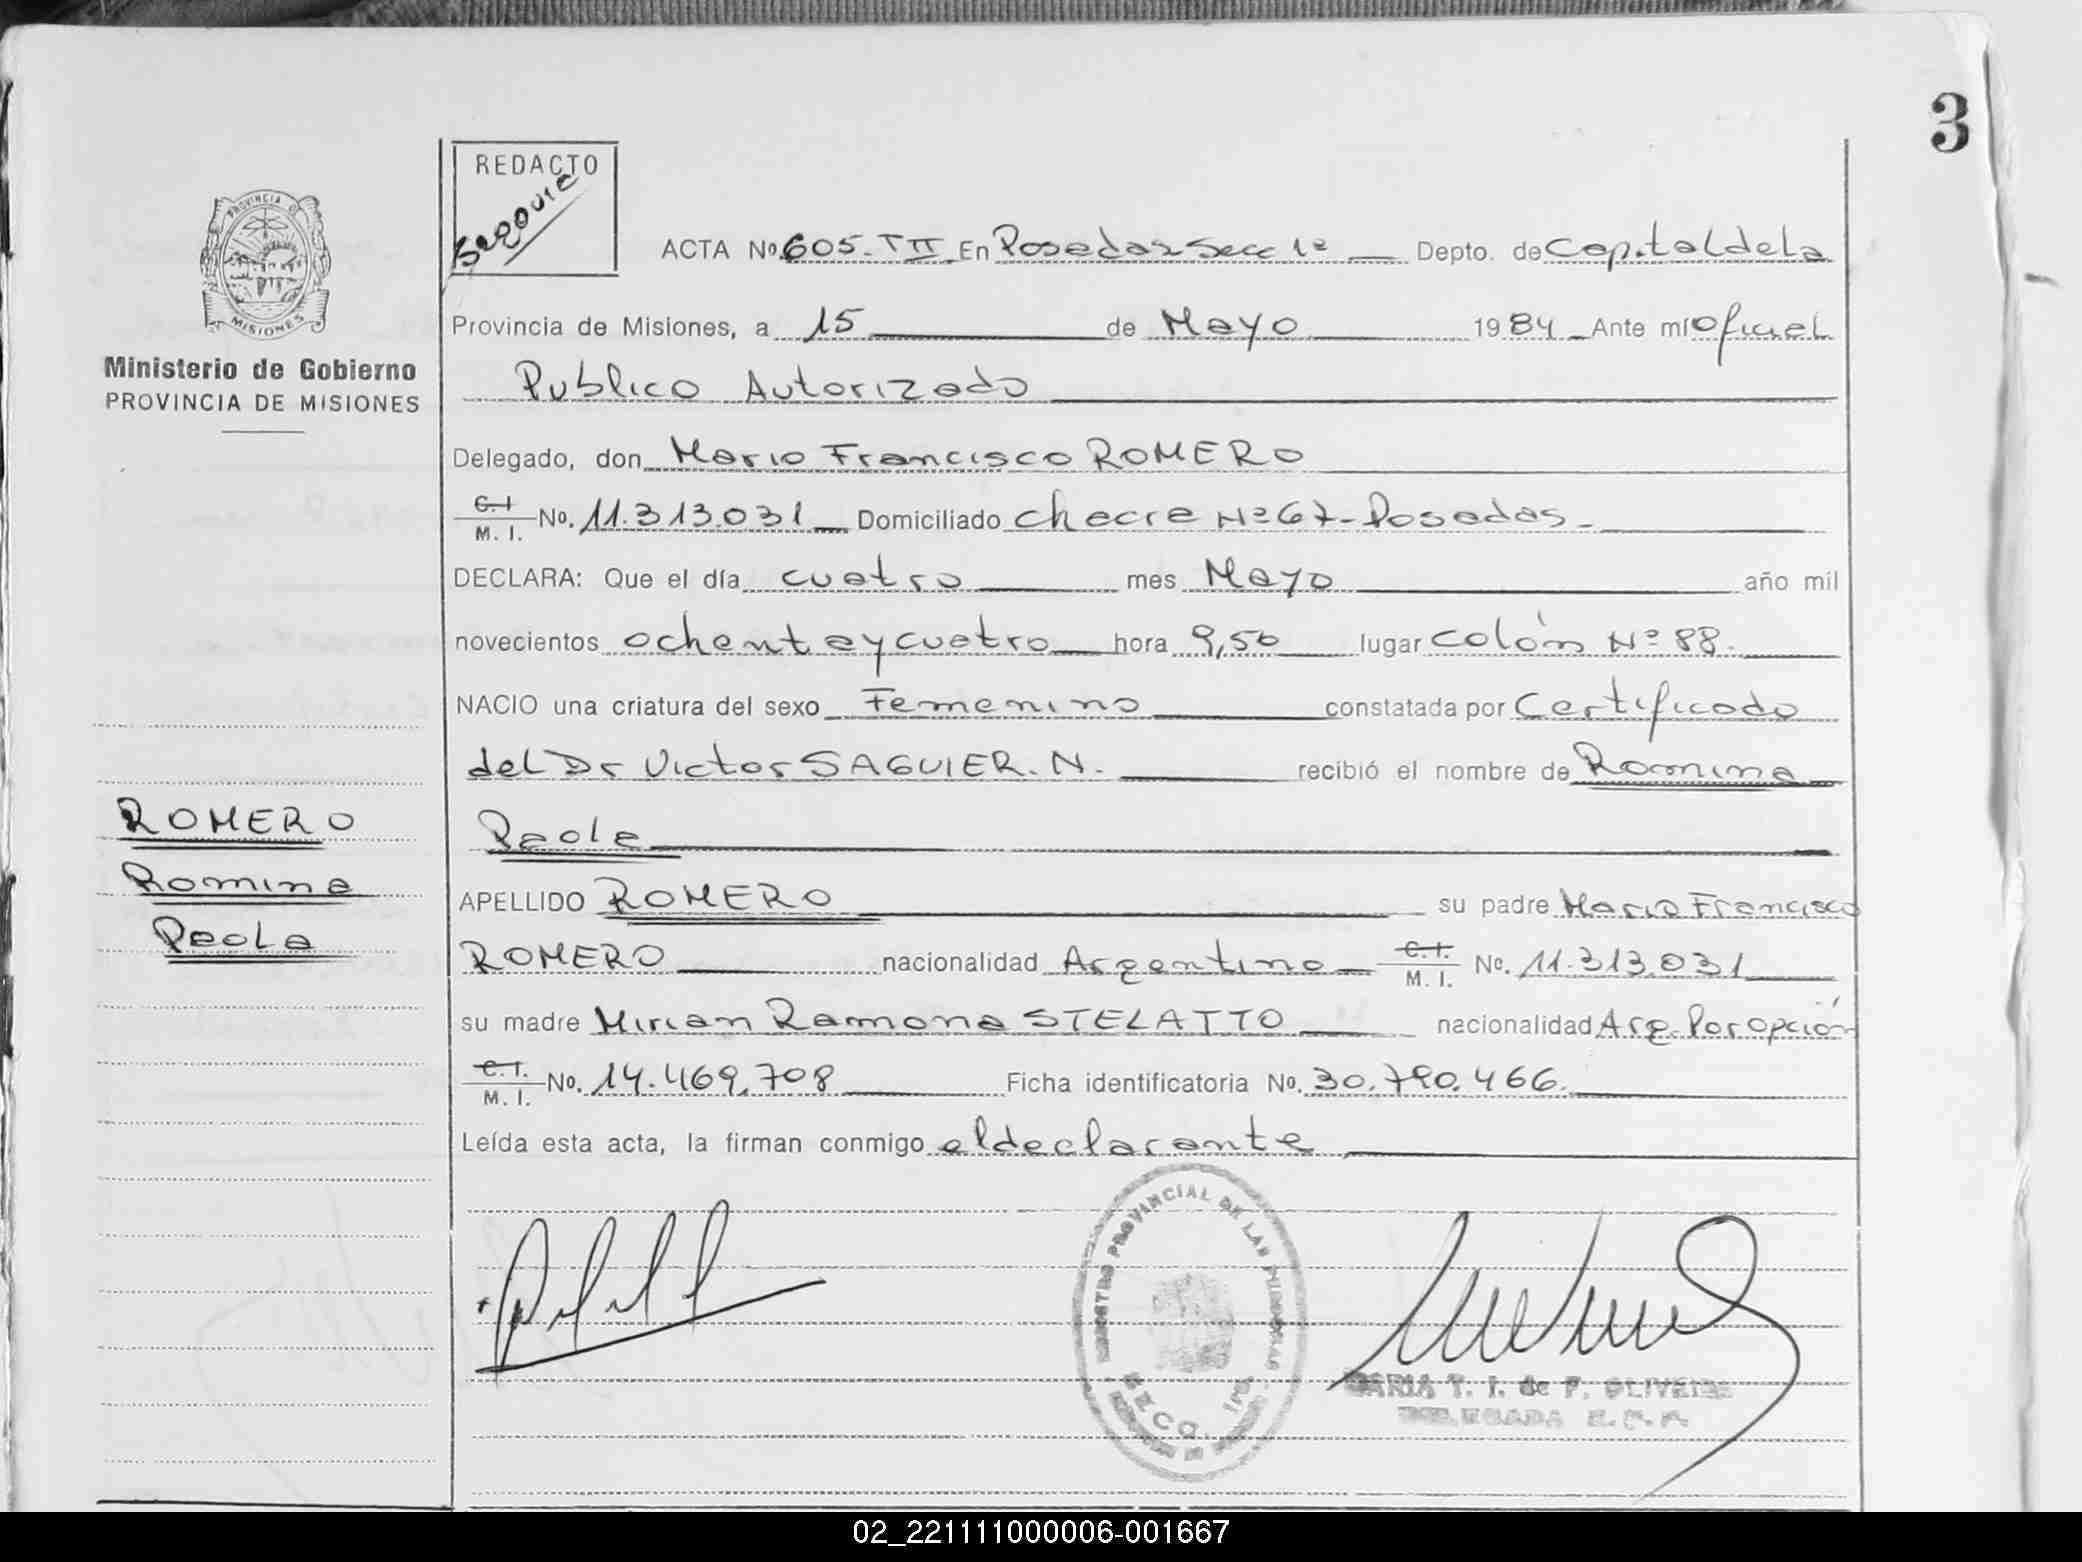 3
REDACTO
ACTA No. 605. T II En Posadas Secc 1ª Depto. de Capital de la
Provincia de Misiones, a 15 de Mayo 1984 Ante mí Oficial
Publico Autorizado
PROVINCIA DE
MISIONES
Ministerio de Gobierno
PROVINCIA DE MISIONES
Delegado, don Mario Francisco ROMERO
C. I. M. I. No. 11.313.031 Domiciliado Checre Nº 67-Posadas-
DECLARA: Que el día cuatro mes Mayo año mil
novecientos ochenta y cuatro hora 9,50 lugar Colón Nº 88.
NACIO una criatura del sexo Femenino constatada por Certificado
del Dr Victor SAGUIER. N. recibió el nombre de Romina
Paola
ROMERO
Romina
Paola
APELLIDO ROMERO su padre Mario Francisco
ROMERO nacionalidad Argentino C. I. M. I. No. 11.313.031
su madre Mirian Ramona STELATTO nacionalidad Arg. Por opción
C. I. M. I. No. 14.469.708 Ficha identificatoria No. 30.790.466.
Leída esta acta, la firman conmigo el declarante
REGISTRO PROVINCIAL DE LAS PERSONAS
SECC. 1ra.
MARIA T. I. de F. OLIVEIRA
DELEGADA R. P. P.
02_221111000006-001667